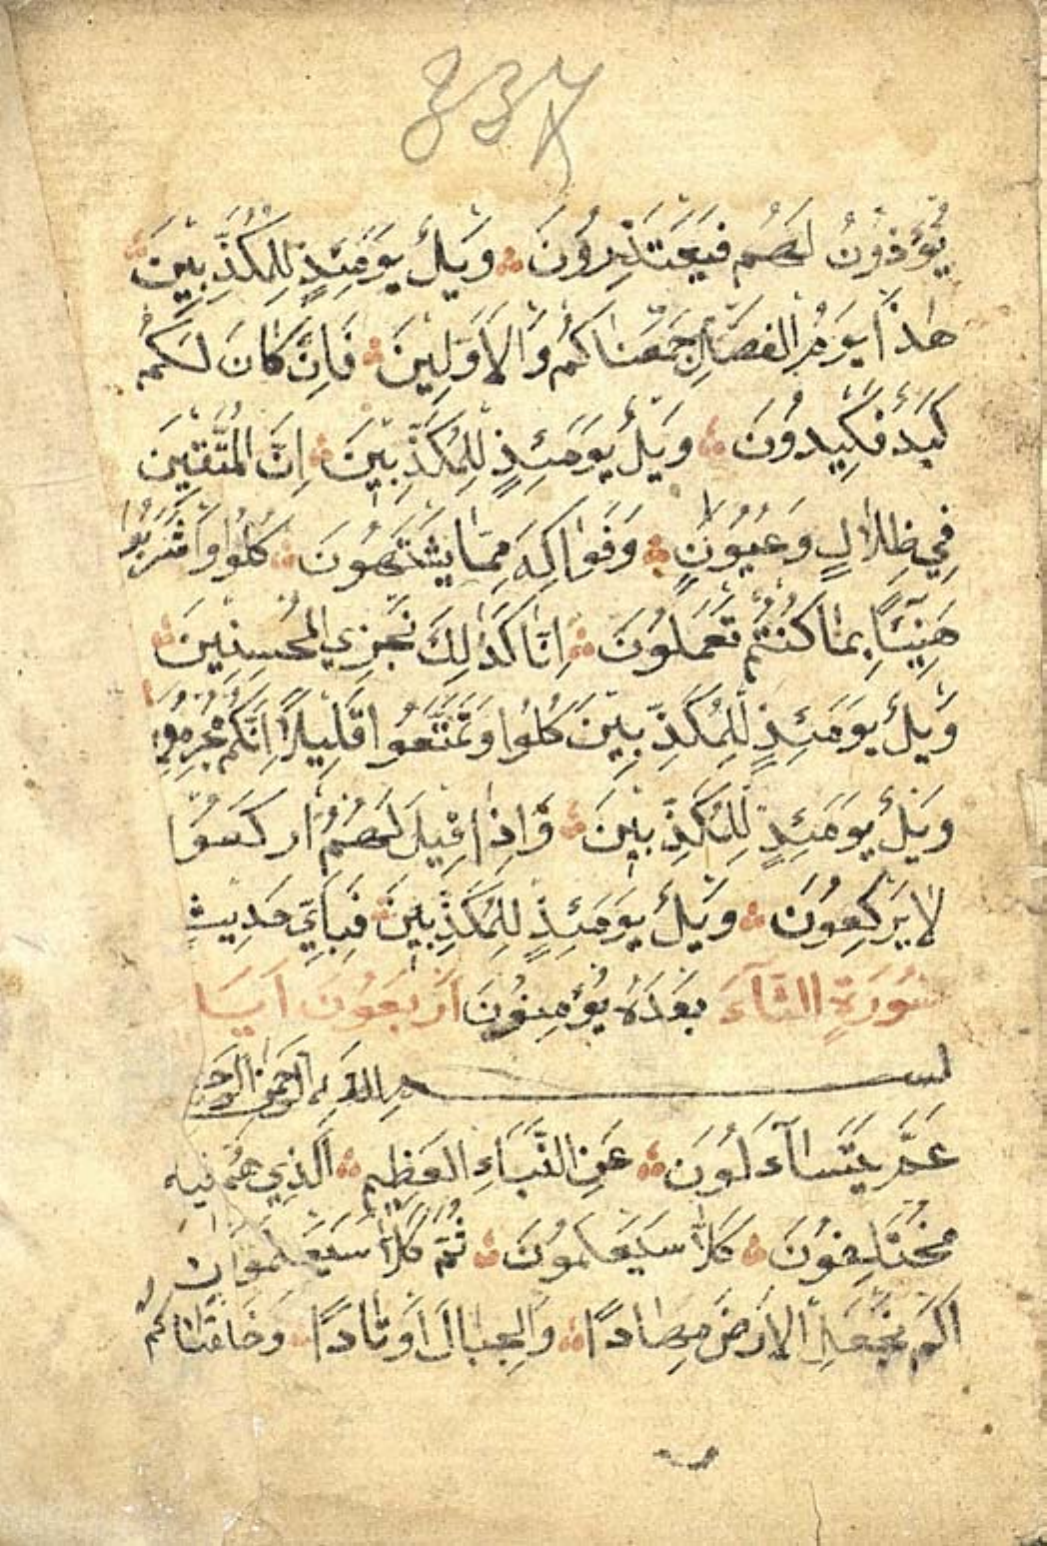 يُؤْذَنُ لَهُمْ فَيَعْتَذِرُونَ وَيْلٌ يَوْمَئِذٍ لِلْمُكَذِّبِينَ
هٰذَا يَوْمُ الْفَصْلِ جَمَعْنَاكُمْ وَالْاَوَّلِينَ فَاِنْ كَانَ لَكُمْ
كَيْدٌ فَكِيدُونَ وَيْلٌ يَوْمَئِذٍ لِلْمُكَذِّبِينَ اِنَّ الْمُتَّقِينَ
فِي ظِلَالٍ وَعُيُونٍ وَفَوَاكِهَ مِمَّا يَشْتَهُونَ كُلُوا وَاشْرَبُوا
هَنِيئًا بِمَا كُنْتُمْ تَعْمَلُونَ اِنَّا كَذٰلِكَ نَجْزِي الْمُحْسِنِينَ
وَيْلٌ يَوْمَئِذٍ لِلْمُكَذِّبِينَ كُلُوا وَتَمَتَّعُوا قَلِيلًا اِنَّكُمْ
وَيْلٌ يَوْمَئِذٍ لِلْمُكَذِّبِينَ وَاِذَا قِيلَ لَهُمُ
لَا يَرْكَعُونَ وَيْلٌ يَوْمَئِذٍ لِلْمُكَذِّبِينَ فَبِاَيِّ حَدِيثٍ
سُورَةِ بَعْدَهُ يُؤْمِنُونَ اَرْبَعُونَ
بسم الله الرحمن
عَمَّ يَتَسَاۤءَلُونَ عَنِ النَّبَاِ الْعَظِيمِ اَلَّذِي هُمْ فِيهِ
مُخْتَلِفُونَ كَلَّا سَيَعْلَمُونَ ثُمَّ كَلَّا سَيَعْلَمُونَ
اَلَمْ نَجْعَلِ الْاَرْضَ مِهَادًا وَالْجِبَالَ اَوْتَادًا وَخَلَقْنَاكُمْ